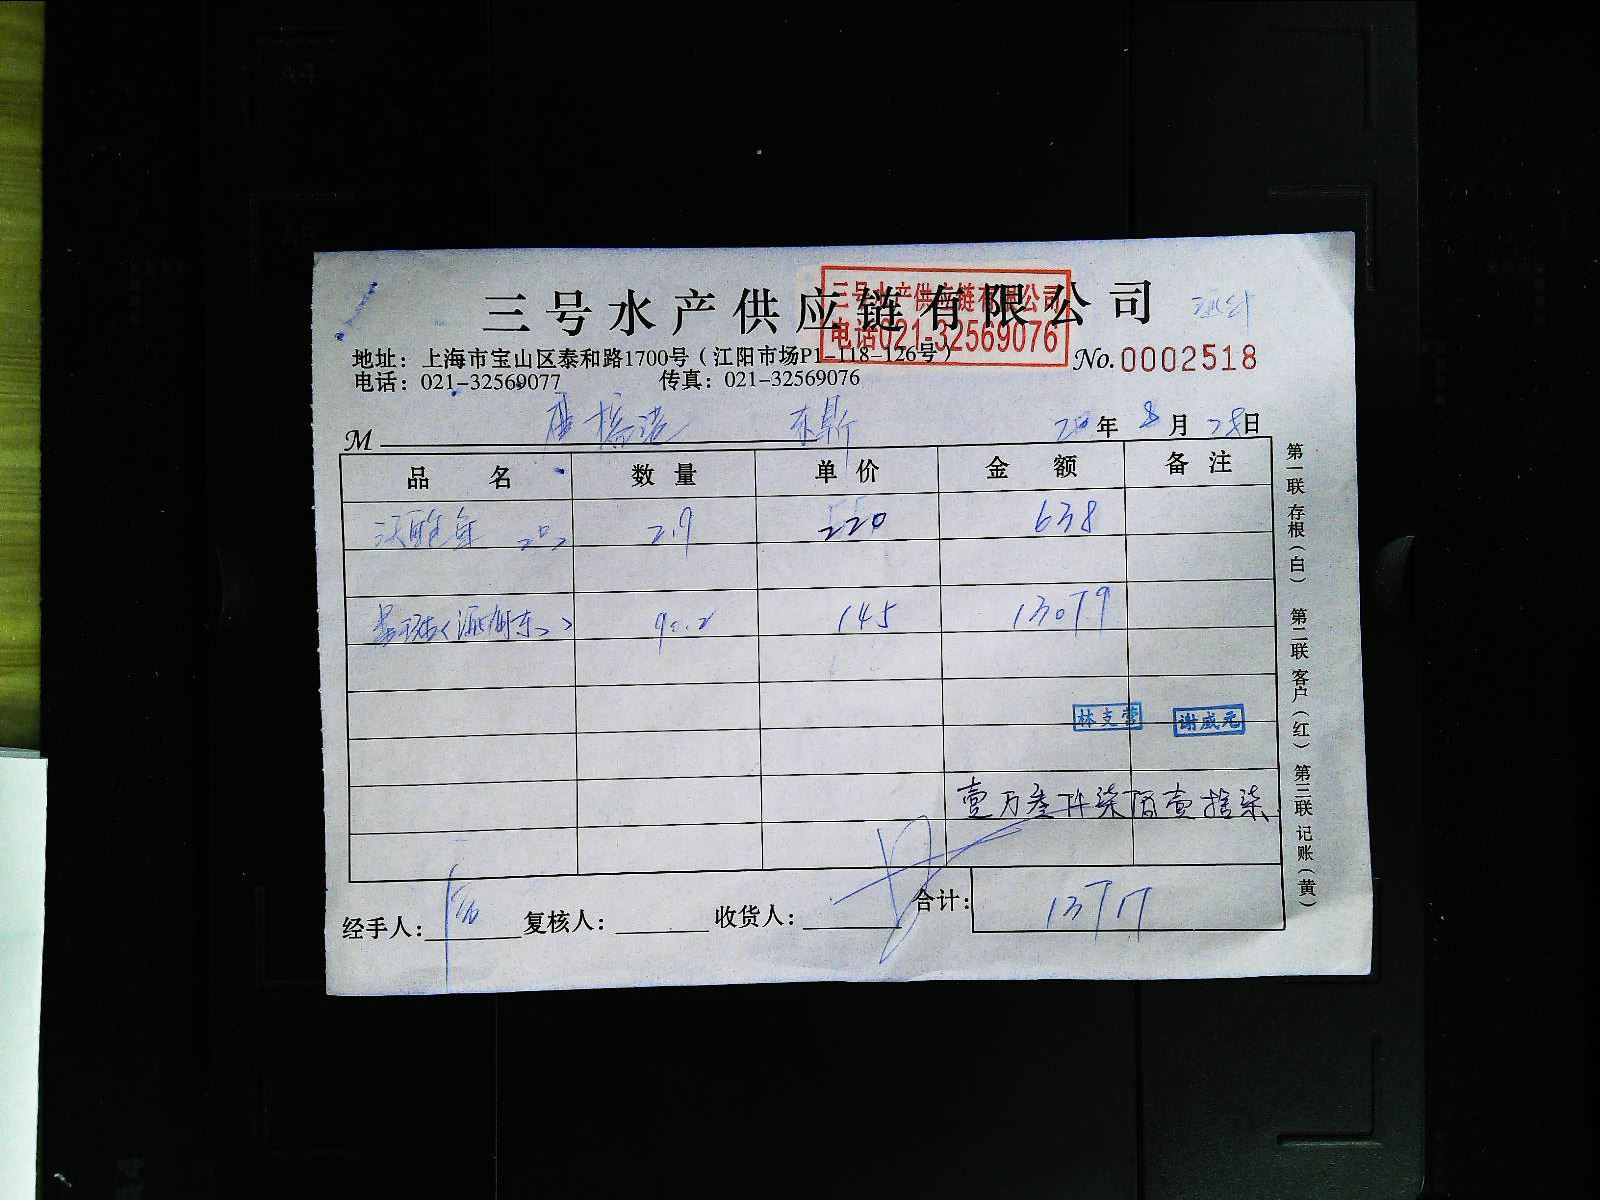 A4
A5
三号水产供应链有限公司
三号水产供应链有限公司
电话021-32569076
地址：上海市宝山区泰和路1700号（江阳市场P1-118-126号）
No.0002518
电话：021-32569077 传真：021-32569076
M 20年8月28日
品名 数量 单价 金额 备注
2.9 220 638
90.2 145 13079
林支营 谢咸元
壹万叁仟柒佰壹拾柒
经手人： 复核人： 收货人： 合计：13717
第一联 存根（白） 第二联 客户（红） 第三联 记账（黄）